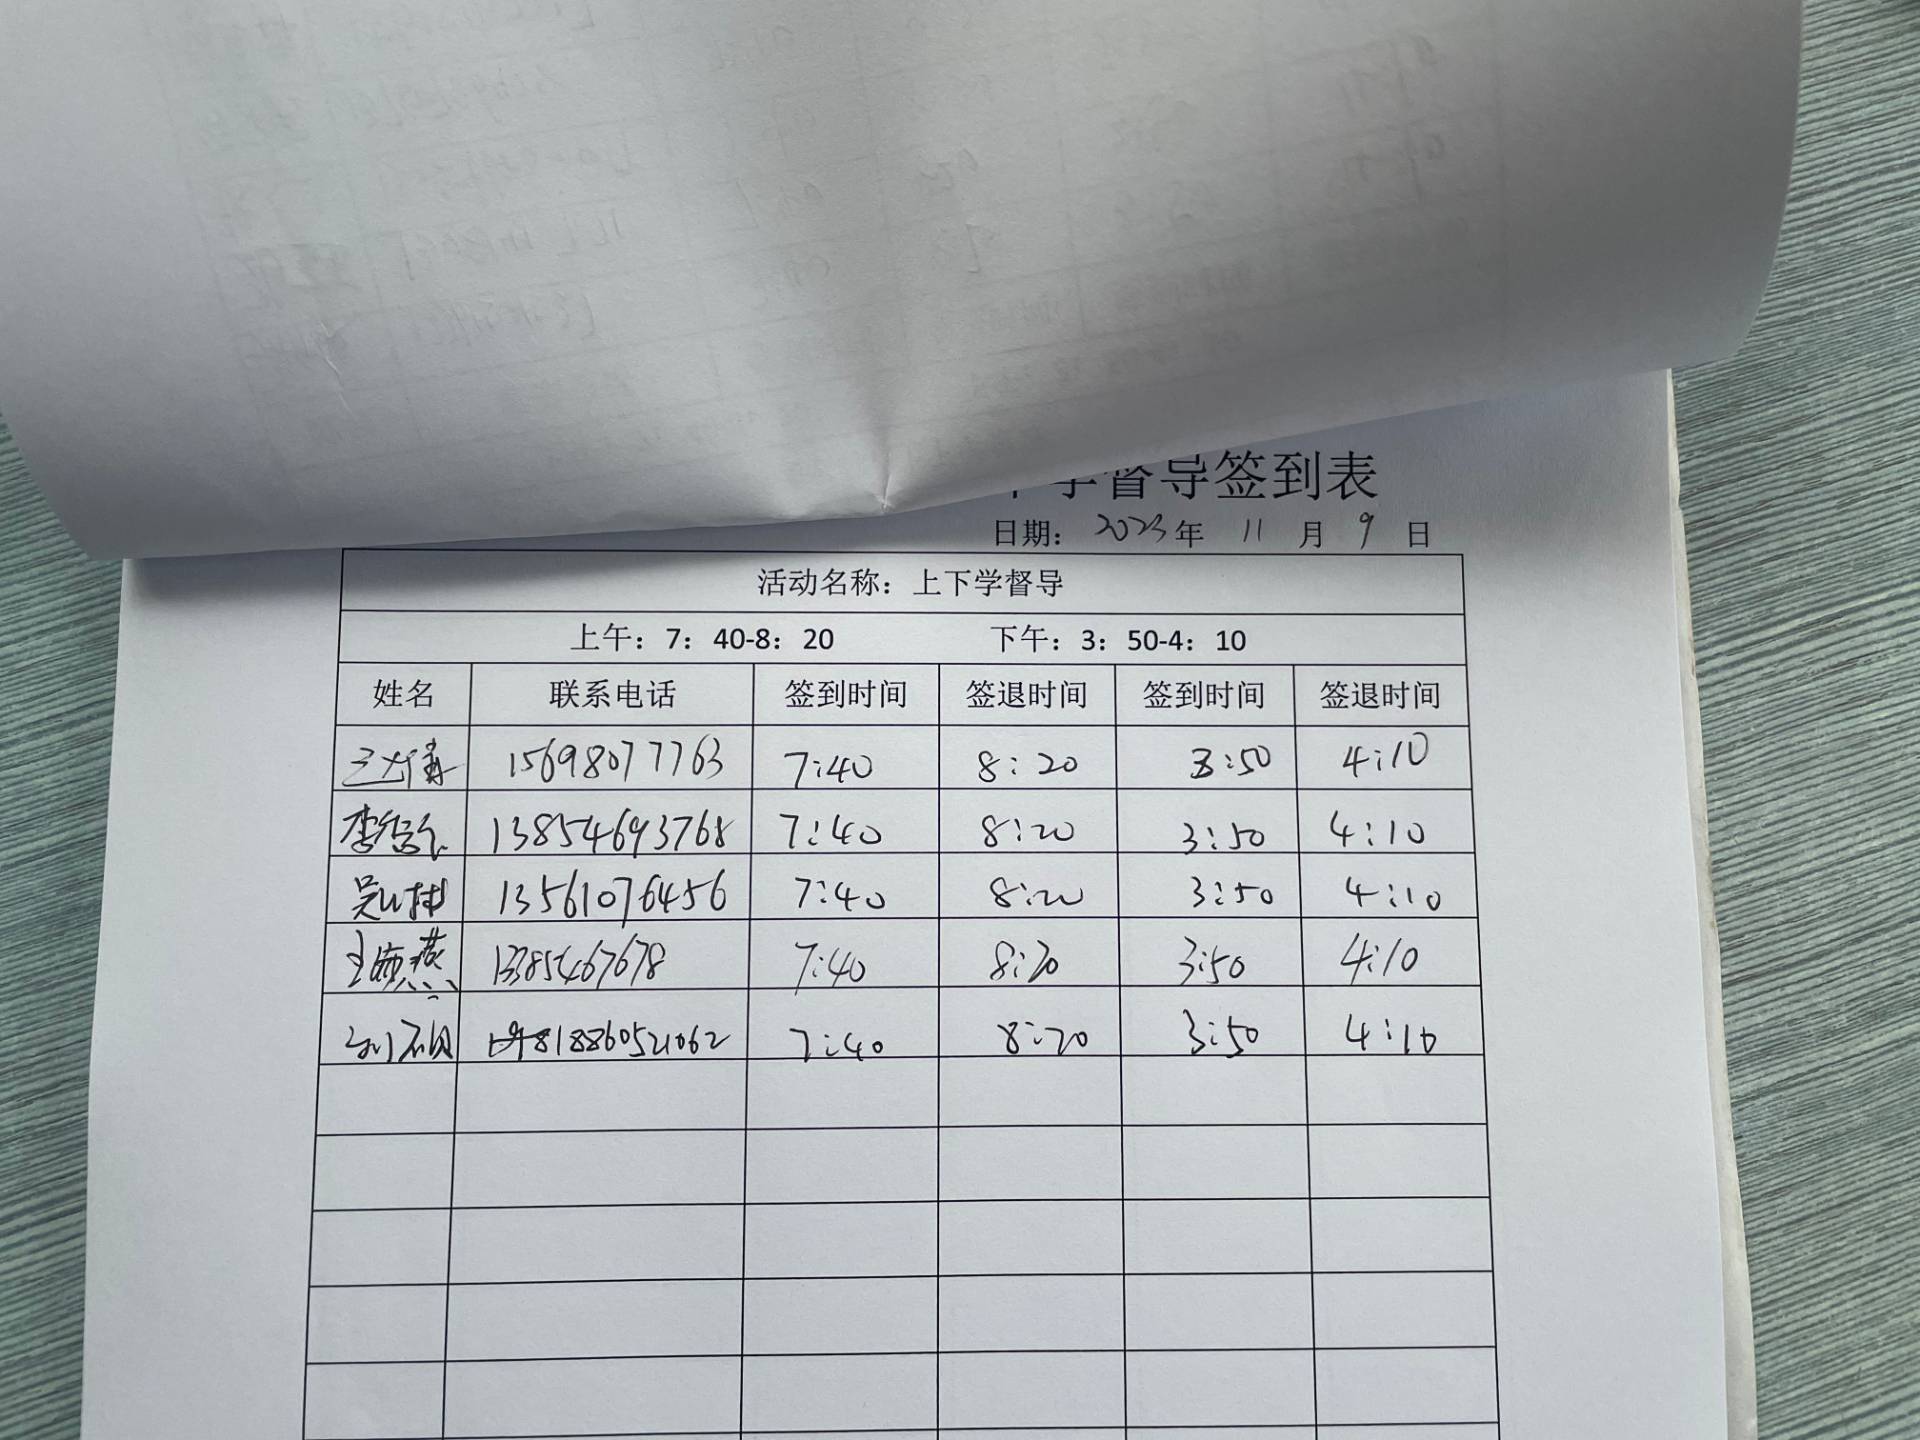 学督导签到表
日期：2023年 11 月 9 日
活动名称：上下学督导
上午：7：40-8：20 下午：3：50-4：10
姓名 联系电话 签到时间 签退时间 签到时间 签退时间
15698077763 7:40 8:20 3:50 4:10
李 13854693768 7:40 8:20 3:50 4:10
吴 13561076456 7:40 8:20 3:50 4:10
王 燕 1385467678 7:40 8:20 3:50 4:10
刘 18860521062 7:40 8:20 3:50 4:10